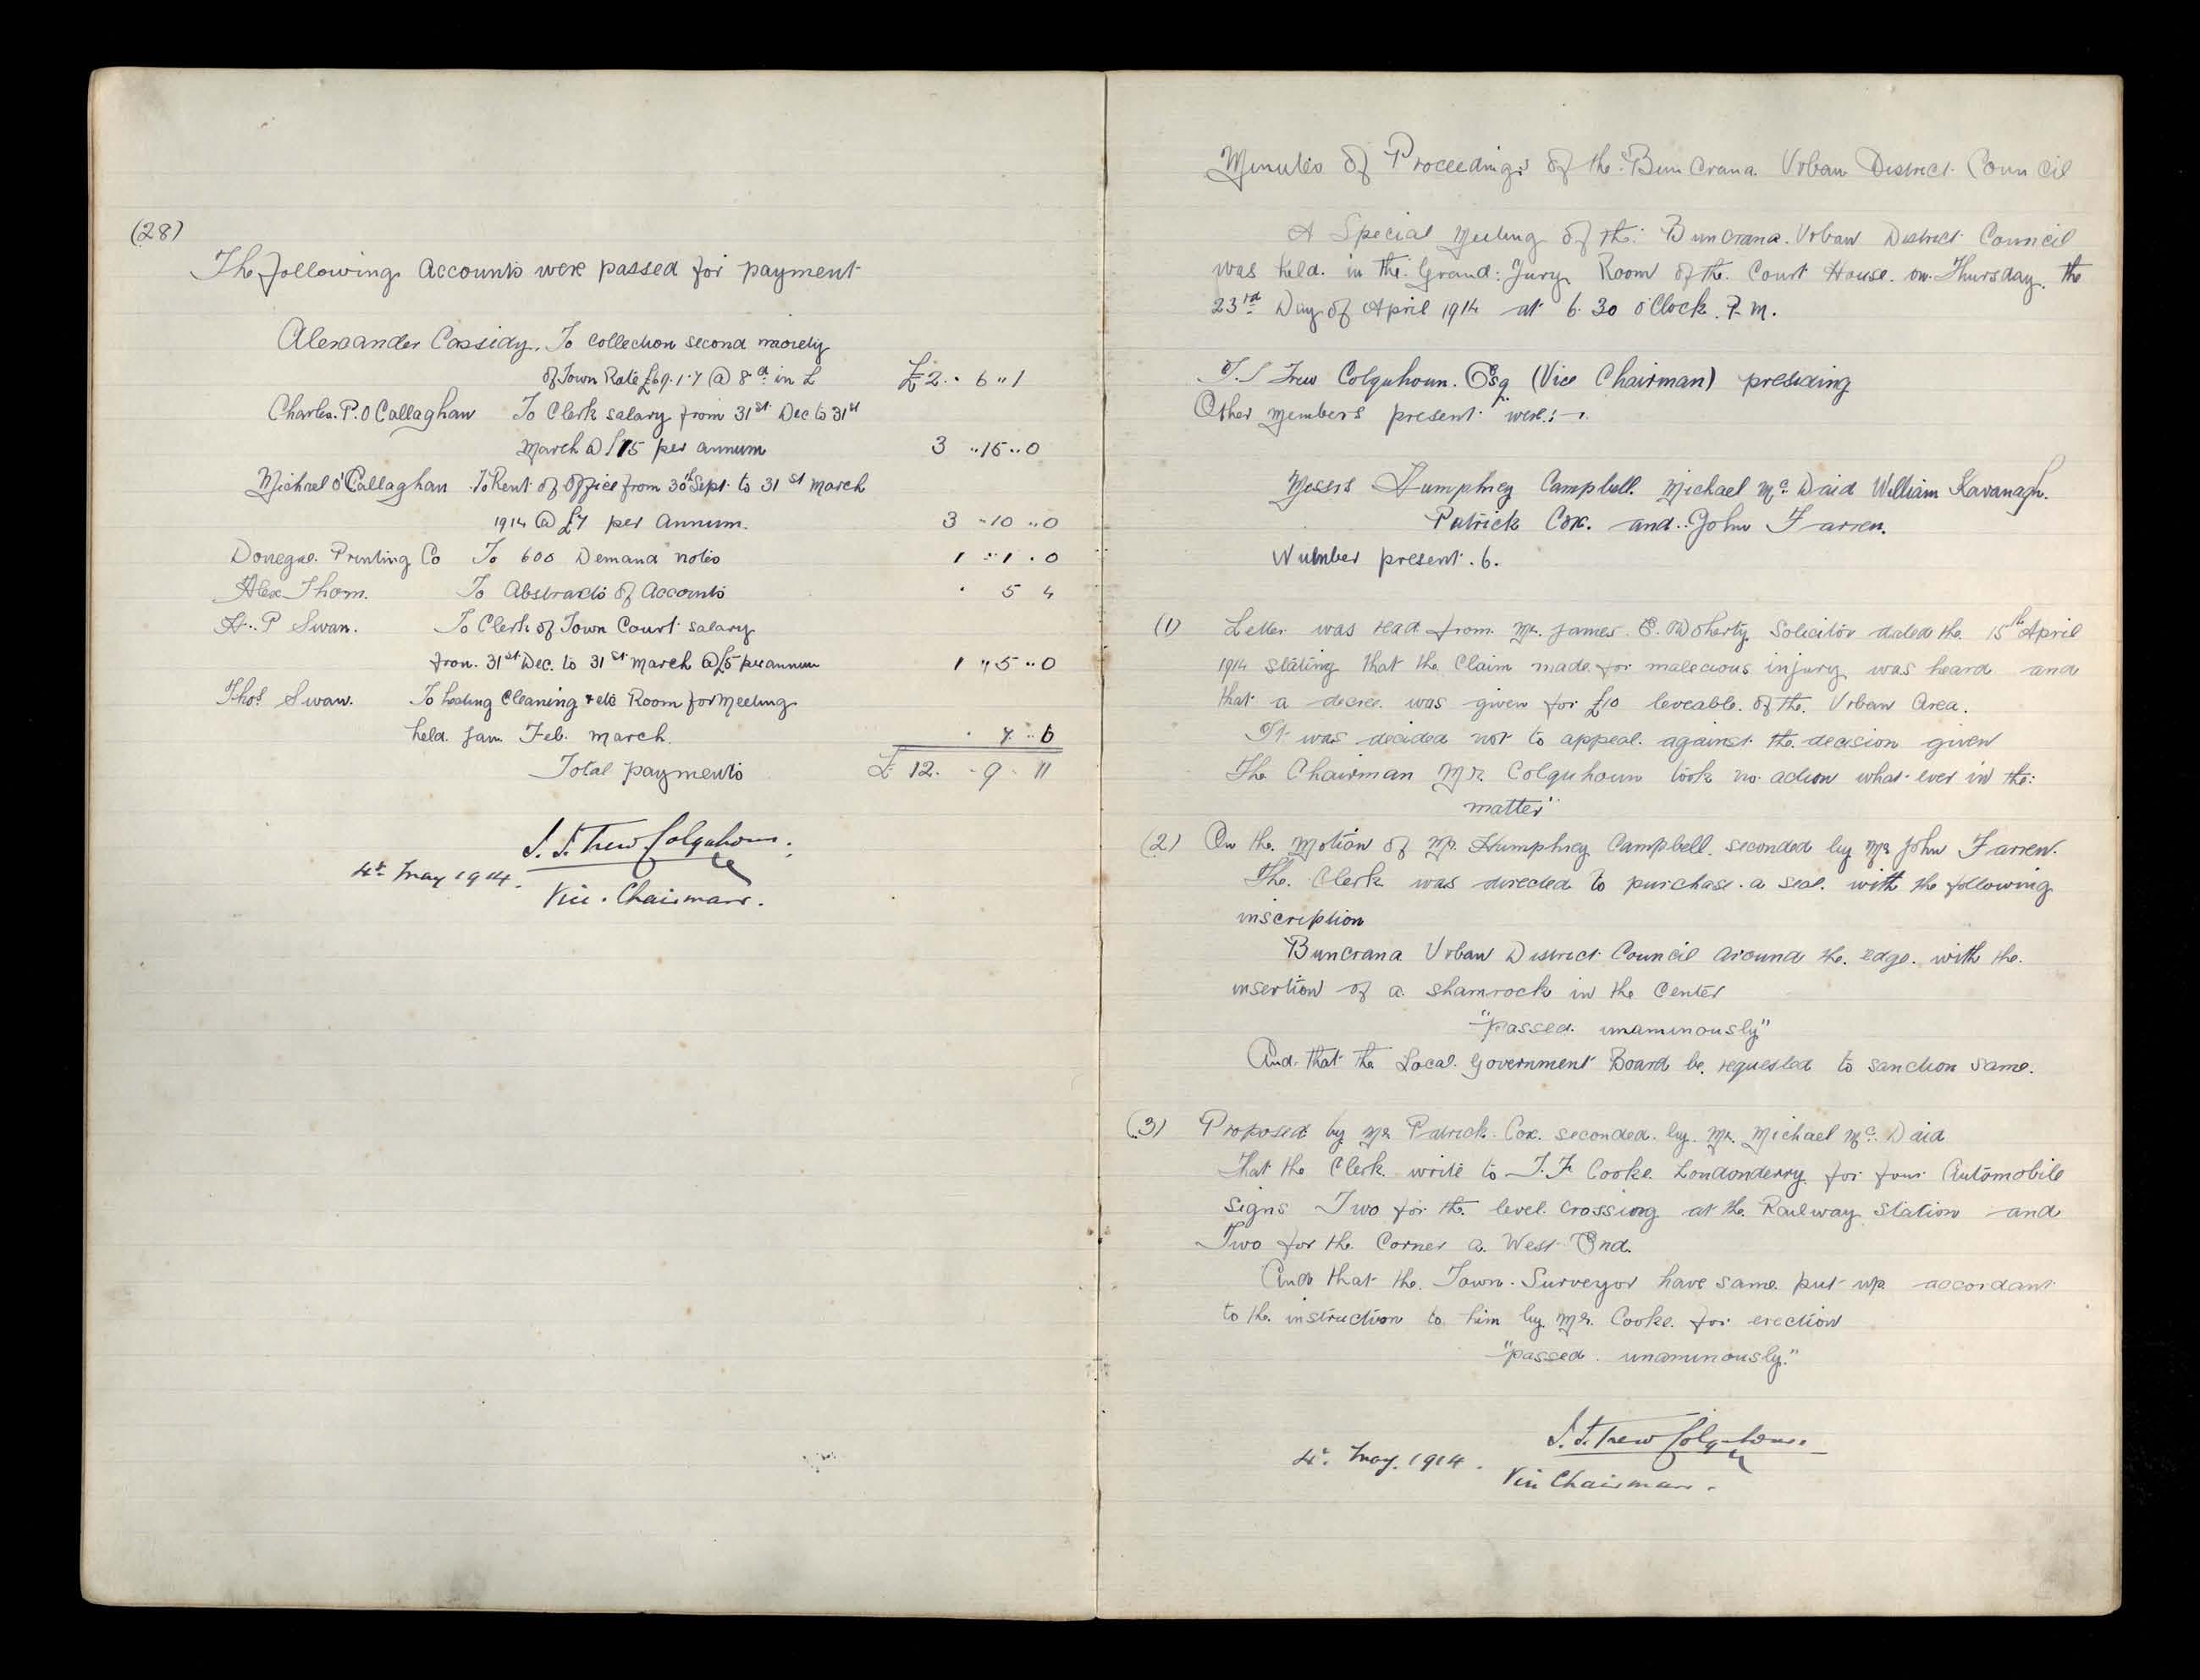 (28)
The following Accounts were passed for payment
Alexander Cassidy. To Collection second moiety
of Town Rate £69.1.7 @ 8d. in £ £2.. 6 " 1
Charles. P. O Callaghan To Clerk salary from 31st Dec to 31st
March @ £15 per annum 3 "15..0
Michael O'Callaghan To Rent of Office from 30th Sept. to 31st March
1914 @ £7 per Annum. 3 "10 "0
Donegal. Printing Co To 600 Demand notes 1 "1.0
Alex Thom. To Abstracts of Accounts 5 4
A.. P Swan. To Clerk of Town Court salary
from. 31st Dec. to 31st March @ £5 per annum 1 "5 "0
Thos Swan. To heating Cleaning & etc Room for Meeting
held. Jan. Feb. March. 7 .. 6
Total payments £ 12. . 9 . 11
J. J. Trew Colquhoun.
4th May 1914. Vice. Chairman.
Minutes of Proceedings of the Buncrana Urban District Council
A Special Meeting of the Buncrana. Urban District Council
was held. in the Grand: Jury Room of the. Court House. on Thursday. the
23rd Day of April 1914 at 6. 30 o'Clock. P. M.
Trew Colquhoun. Esq (Vice Chairman) presiding
Other Members present were:—.
Messrs Humphrey Campbell. Michael Mc. Daid William Kavanagh.
Patrick Cox. and.. John Farren.
Number present. 6.
(1) Letter was read from Mr. James E. O'Doherty Solicitor dated the 15th April
1914 stating that the Claim made for malecious injury was heard and
that a decree. was given for £10 leveable. of the. Urban Area.
It was decided not to appeal. against the decision given
The Chairman Mr. Colquhoun took no action what ever in the:
matter"
(2) On the Motion of Mr. Humphrey Campbell. seconded by Mr John Farren.
The. Clerk was directed to purchase. a seal. with the following
inscription
Buncrana Urban District Council around the. edge. with the.
insertion of a. shamrock in the Center
"passed. unaminously"
And. that the Local. Government Board be. requested to sanction same.
(3) Proposed by Mr Patrick. Cox. seconded. by. Mr. Michael Mc. Daid
That the Clerk. write to J. F. Cooke. Londonderry for four Automobile
signs Two for the level. crossiong at the Railway Station and
Two for the Corner a. West End.
And that the. Town. Surveyor have same put up accordant
to the instruction to him by Mr. Cooke. for erection
"passed. unaminously."
J. J. Trew Colquhoun.
4th. May. 1914. Vice Chairman.